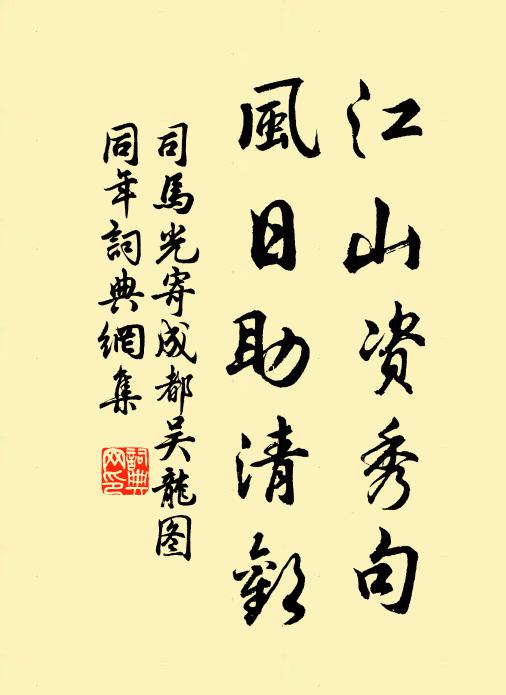 江山资秀句
風日助清歡
司馬光寄成都吴龍图
同年詞典網集
詞典网印